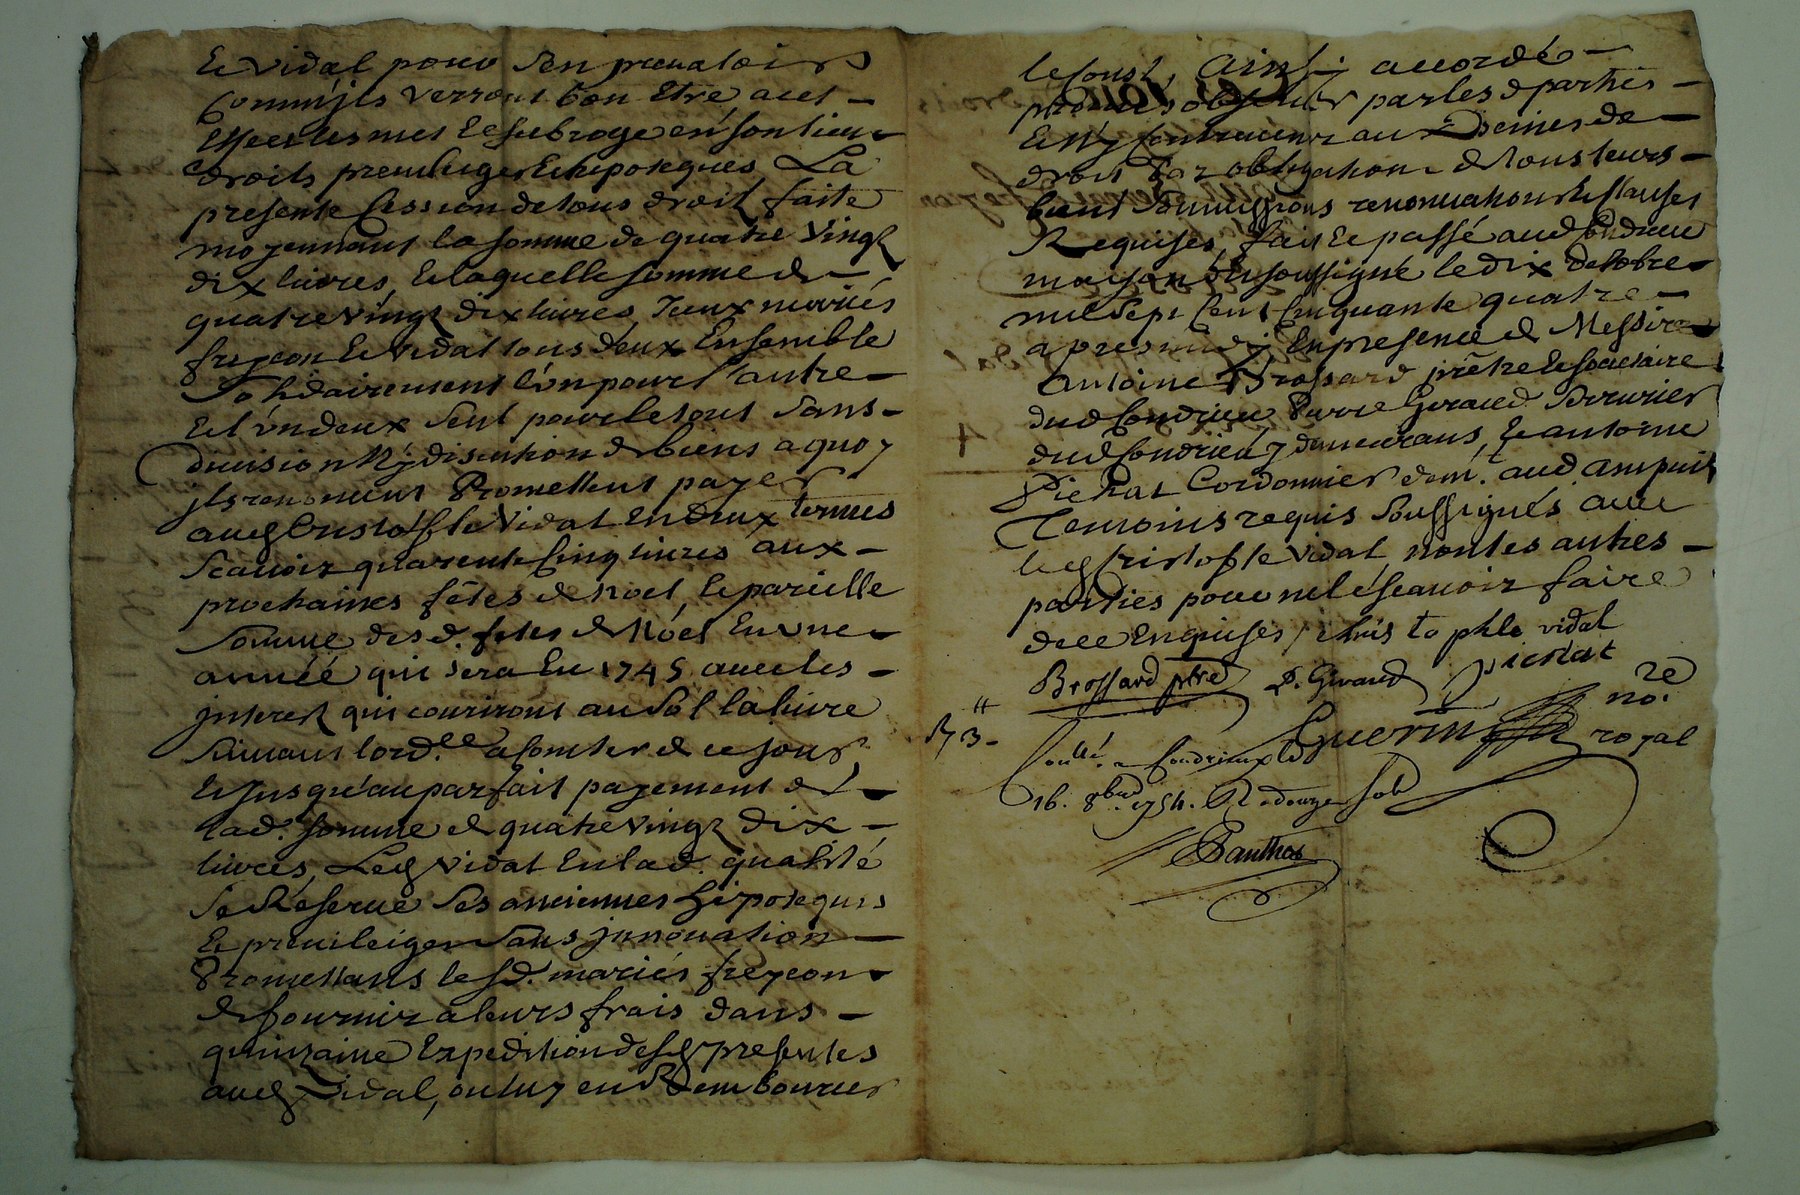 et Vidal pour s'en prevaloir
comm'jls verront bon Etre a cet
Effect les met et subroge en son lieu
droits, previleges et hipoteques, La
presente Cession de tous droit faite
moyennant la somme de quatre vingt
dix livres, et laquelle somme de
quatre vingt dix livres, Jceux mariés
freycon et vidal tous deux Ensemble
Solidairement l'un pour l'autre
et l'un deux seul pour le tout sans
division Ny discution de biens a quoy
jls renoncent Promettent payer
aud Cristofle Vidal En Deux termes
Scavoir quarente Cinq livres aux
prochaines fêtes de Noel, et pareille
Somme des d. fetes de Nöel En une
année qui sera En 1745 avec les
jnterest qui couriront au Sol la livre
Suivant lord.ce a comter de ce jour,
et Jusqu'au parfait payement de
lad. somme de quatre vingt dix
livres, Led Vidal En lad. qualité
se Reserve ses anciennes hipoteques
et previleiges Sans jnnovation
Promettans lesd. mariés freycon
de fournir a leurs frais dans
quinzaine Expedition des presentes
aud Vidal, ou luy en Rembourcer
le Coust, Ainsy accordé
promis observer par les d parties
et N'y Contrevenir aux Peines de
droit Par obligation de tous leurs
biens Soumissions renonciation et Clauses
Requises, fait et passé aud Condrieu
maison du soussigné le dix octobre
mil sept Cent Cinquante quatre
apres midy, En presence de Messire
Antoine Brossard prêtre et sociétaire
dud Condrieu, Pierre Giraud
dud Condrieu y demeurans, et antoine
Pichat Cordonnier dem.t aud ampuis
Temoins requis Soussignés avec
led Cristofle Vidal, non les autres
parties pour ne le scavoir faire
de ce Enquises / chris to phle vidal
Brossard ptre P. Giraud pichat
Guerin no.re royal
Con.llé a Condrieux le
16. 8bre 1754. R douze sols
Panthot